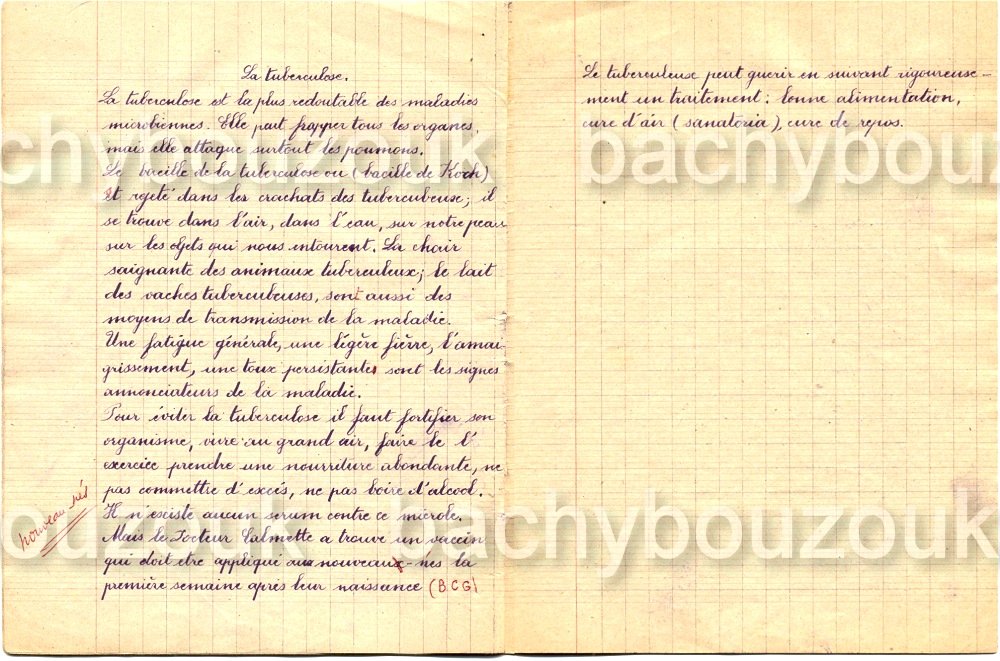 La tuberculose.
La tuberculose est la plus redoutable des maladies
microbiennes. Elle peut frapper tous les organes,
mais elle attaque surtout les poumons.
Le bacille de la tuberculose ou (bacille de Koch)
Et rejeté dans les crachats des tuberculeuse; il
se trouve dans l'air, dans l'eau, sur notre peau
sur les objets qui nous entourent. La chair
saignante des animaux tuberculeux; le lait
des vaches tuberculeuses, sont aussi des
moyens de transmission de la maladie.
Une fatigue générale, une légère fièvre, l'amai
grissement, une toux persistante sont les signes
annonciateurs de la maladie.
Pour éviter la tuberculose il faut fortifier son
organisme, vivre au grand air, faire le l'
exercice prendre une nourriture abondante, ne
pas commettre d'excés, ne pas boire d'alcool.
Il n'esciste aucun serum contre ce microbe.
Mais le Docteur Calmette a trouve un vaccin
qui doit etre appliqué aux nouveaux-nés la
première semaine après leur naissance (B.C.G)
nouveau-nés
Le tuberculeuse peut guerir en suivant rigoureuse-
ment un traitement: bonne alimentation,
cure d'air (sanatoria), cure de repos.
bachybouzouk
bachybouzouk
bachybouzouk